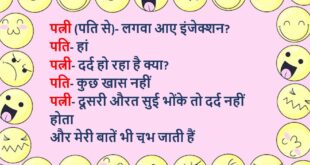 पत्नी (पति से)- लगवा आए इंजेक्शन?
पति- हां
पत्नी- दर्द हो रहा है क्या?
पति- कुछ खास नहीं
पत्नी- दूसरी औरत सुई भोंके तो दर्द नहीं
होता
और मेरी बातें भी चुभ जाती हैं